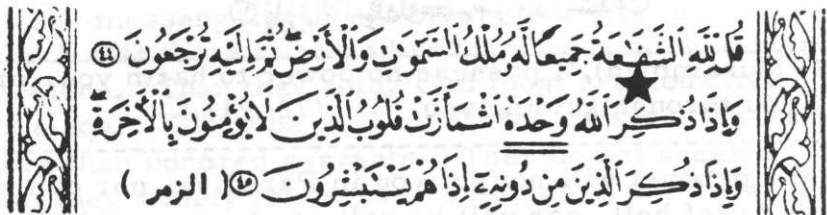 قُل لِّلَّهِ ٱلشَّفَٰعَةُ جَمِيعًا لَّهُۥ مُلْكُ ٱلسَّمَٰوَٰتِ وَٱلْأَرْضِ ثُمَّ إِلَيْهِ تُرْجَعُونَ ﴿٤٤﴾
وَإِذَا ذُكِرَ ٱللَّهُ وَحْدَهُ ٱشْمَأَزَّتْ قُلُوبُ ٱلَّذِينَ لَا يُؤْمِنُونَ بِٱلْأَخِرَةِ
وَإِذَا ذُكِرَ ٱلَّذِينَ مِن دُونِهِۦٓ إِذَا هُمْ يَسْتَبْشِرُونَ ﴿٤٥﴾ ( الزمر )